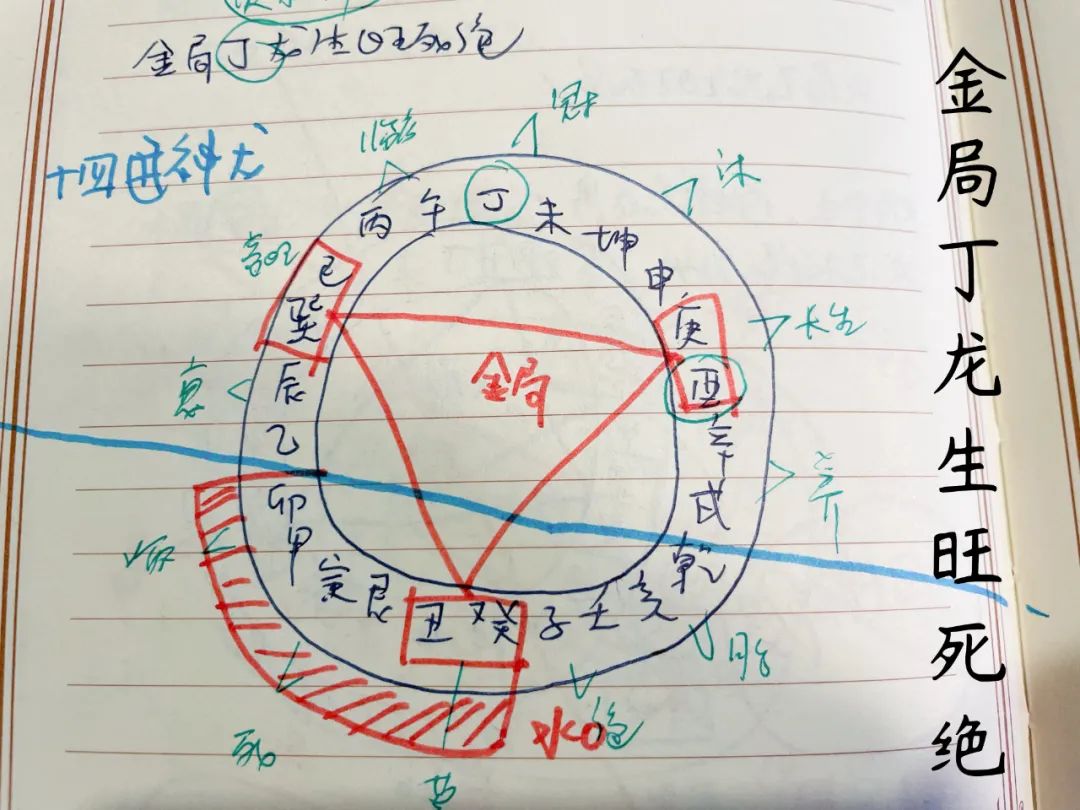 金局丁龙生旺死绝
十四进神龙
冠
临
沐
丁
午
未
丙
坤
帝旺
巳
申
巽
庚
长生
金局
衰
辰
酉
乙
辛
养
卯
戌
病
甲
乾
寅
艮
丑
癸
子
壬
亥
胎
水口
绝
死
墓
金局丁龙生旺死绝